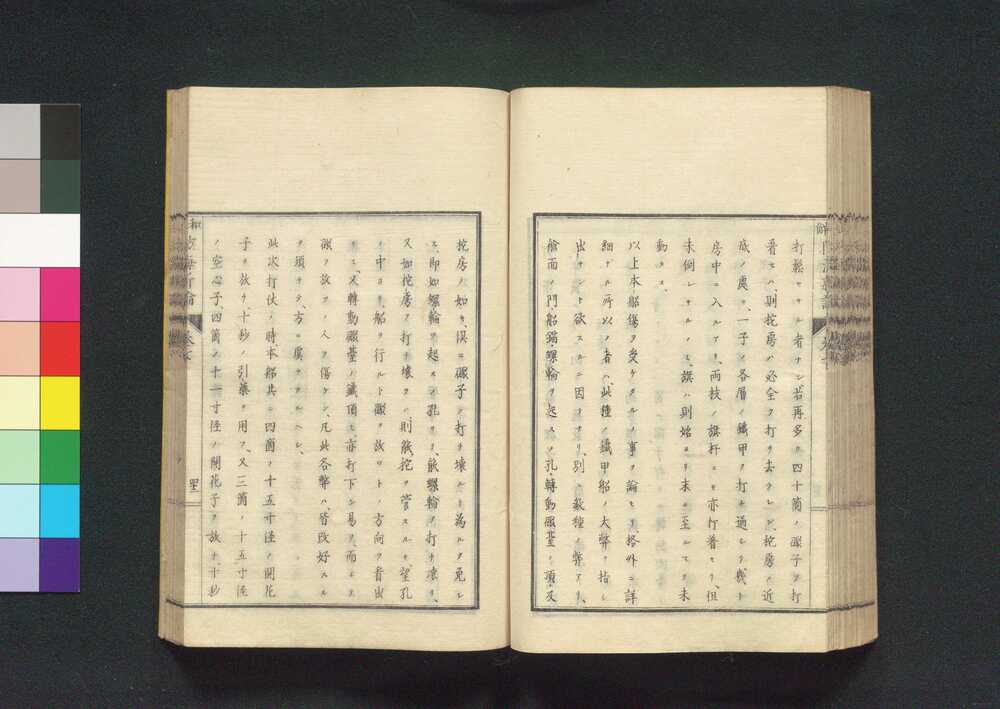 打鬆セサル者ナシ若再多ク四十箇ノ礮子ヲ打
着セハ、則挖房ハ必全ク打チ去ラレン、挖房ノ近
底ノ處ニ一子ノ各層ノ鐵甲ヲ打チ過シテ機ト
房中ニ入ルアリ、両技ノ旗杆ニモ亦打着セリ、但
未倒レサルノミ、旗ハ則始ヨリ末ニ至ルマテ未
動カス
以上本船傷ヲ受ケタルノ事ヲ論セリ、格外ニ詳
細ナル所以ノ者ハ、此種ノ鐵甲船ノ大弊ヲ指シ
出サント欲スルニ因テナリ、別ニ数種ノ弊アリ、
艙面ノ門船 螺輪ヲ起スノ孔、轉動礮臺ノ頂及
挖房ノ如キ、倶ニ礮子ノ打チ壊ルヽヲ為ルヲ免レ
ス、即如螺輪ヲ起スノ孔アリ、能螺輪ヲ打チ壊リ、
又如挖房ヲ打チ壊ラハ、則舵挖ヲ管スルモ望孔
ノ中ヨリ船ヲ行ルト礮ヲ放ツトノ方向ヲ看出
ス又轉動礮臺ノ鐵頂モ亦打下シ易ク、而モ
礮ヲ放ツノ人ヲ傷ケン、凡此各弊ハ、皆改好スル
ヲ須チテ、方ニ虞ナカルヘシ、
此次打仗ノ時本船共ニ四箇ノ十五寸徑ノ開花
子ヲ放チ十秒ノ引藥ヲ用フ、又三箇ノ十五寸徑
ノ空心子、四箇ノ十一寸徑ノ開花子ヲ放チ、十秒